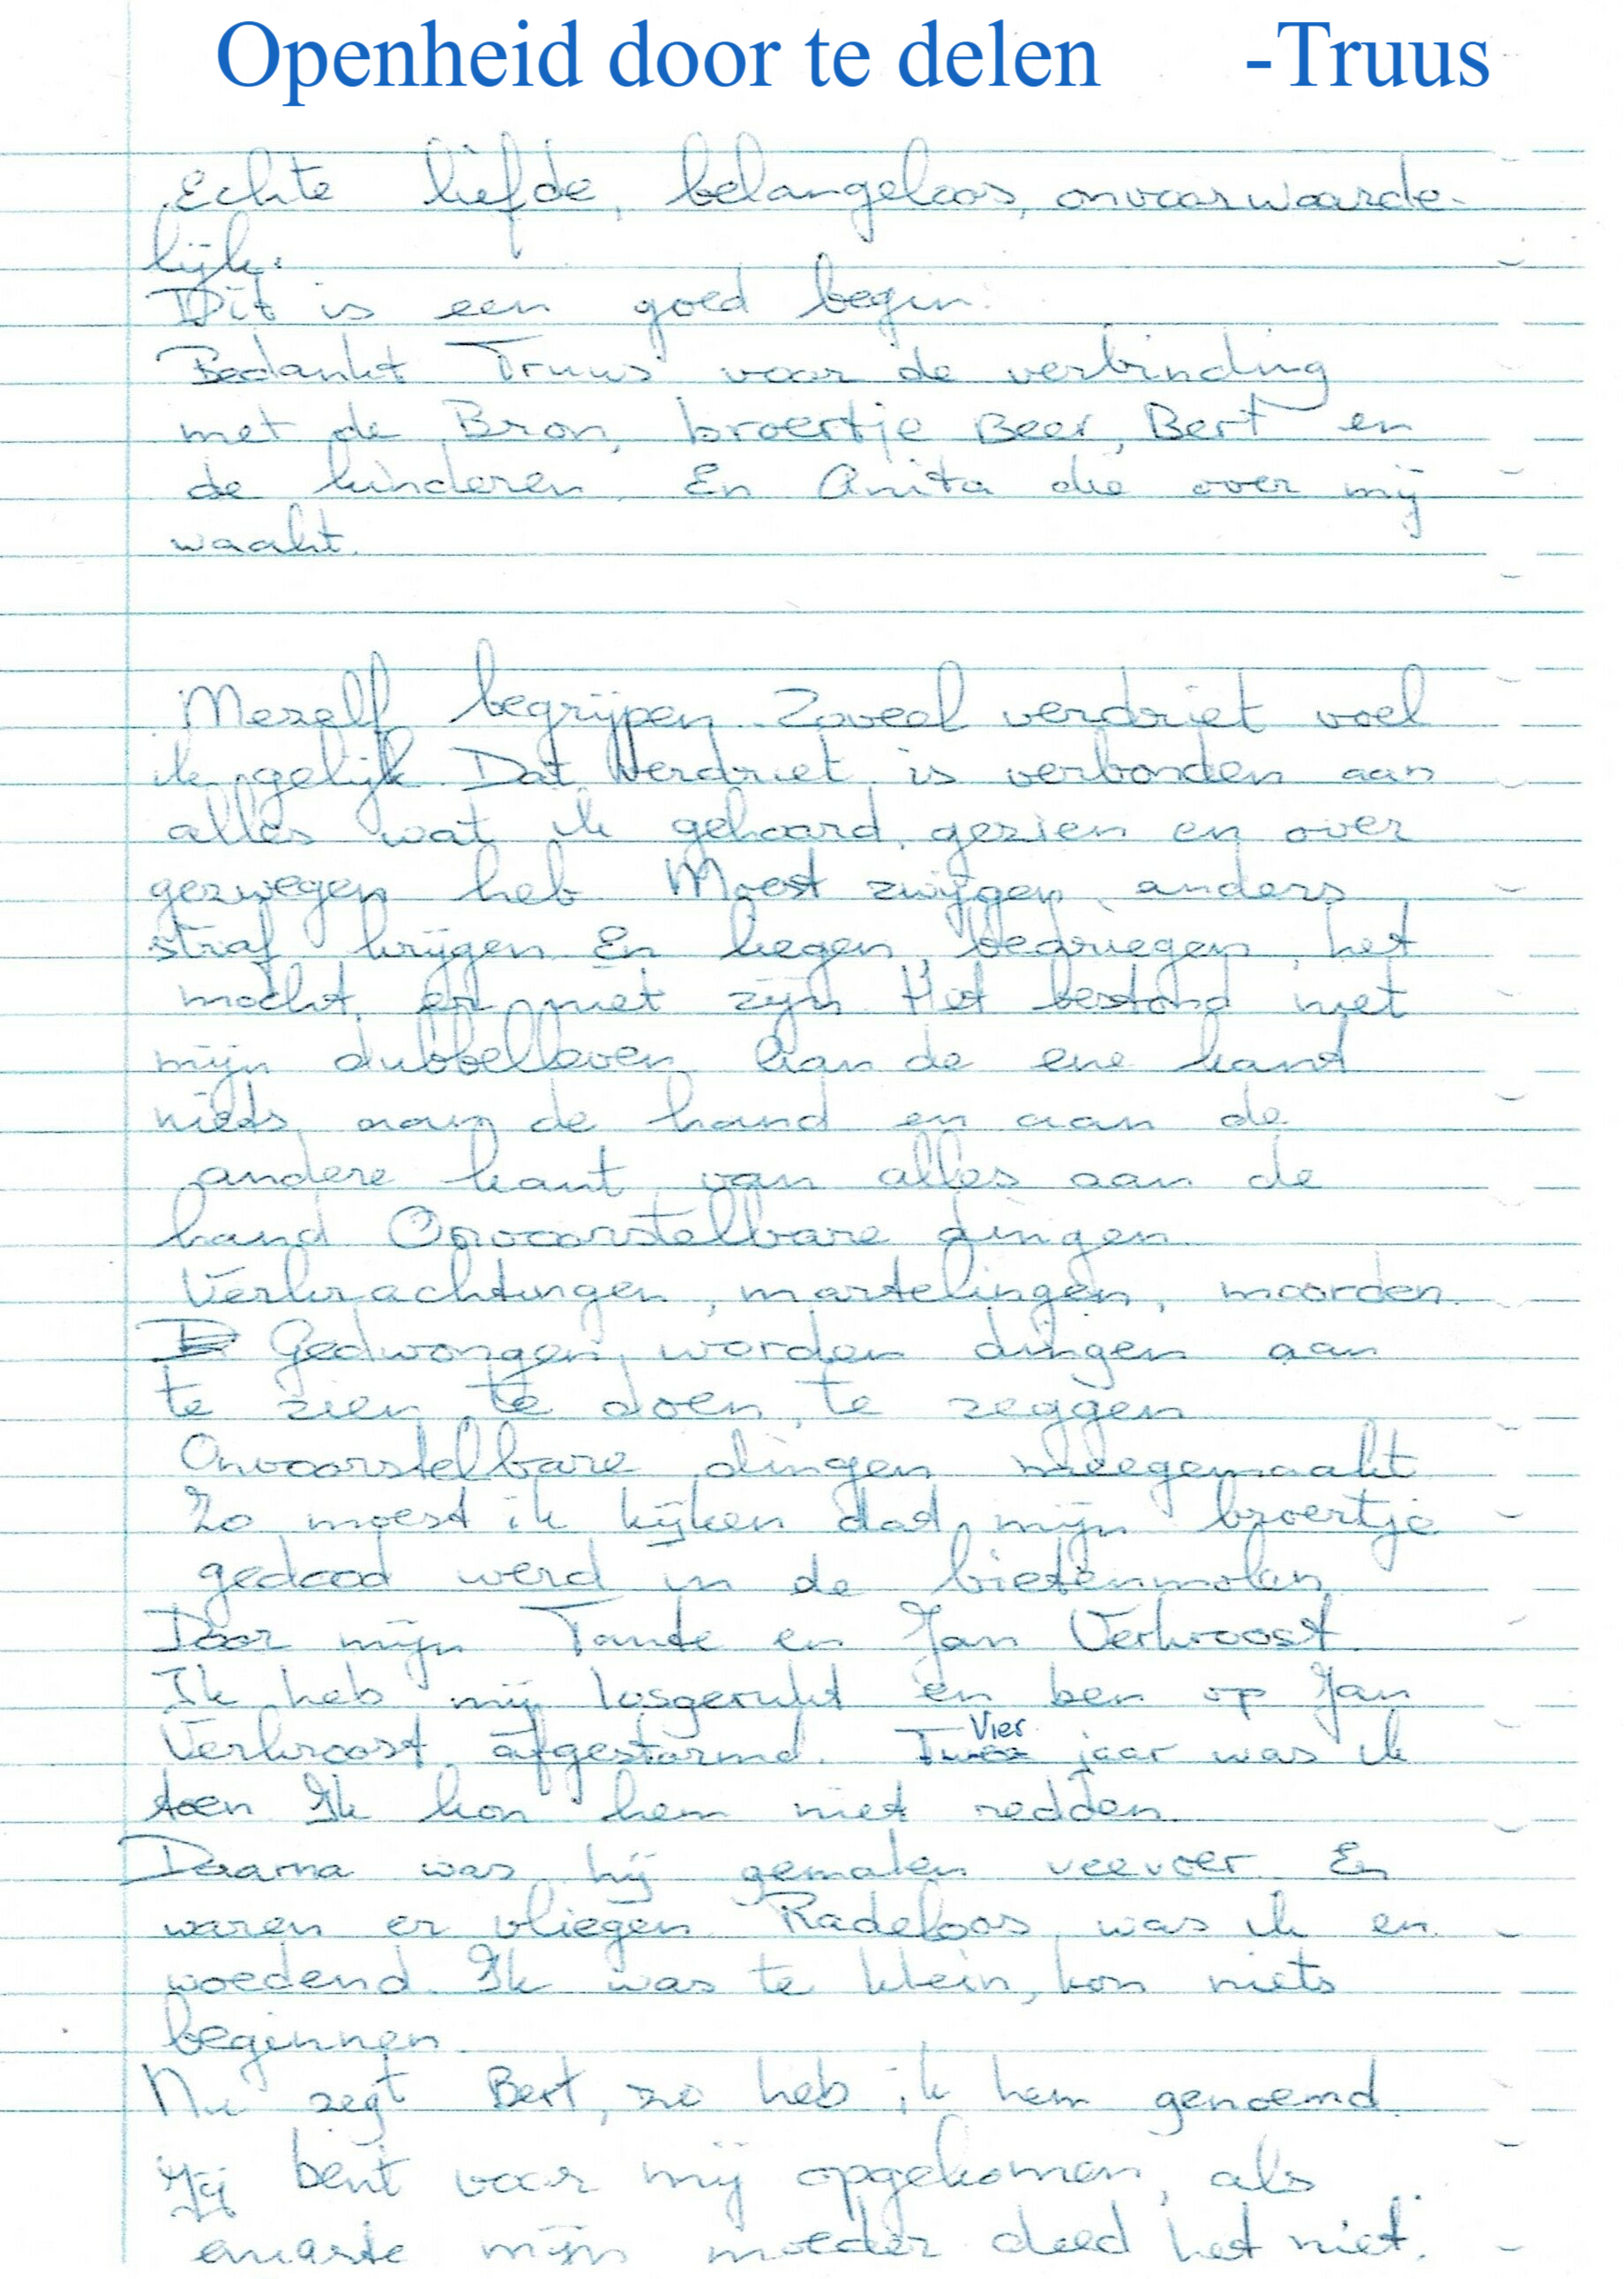 Openheid door te delen -Truus
Echte liefde, belangeloos, onvoorwaarde-
lijk.
Dit is een goed begin.
Bedankt Truus voor de verbinding
met de Bron, broertje Beer, Bert en
de kinderen. En Anita die over mij
waakt.
Mezelf begrijpen. Zoveel verdriet voel
ik gelijk. Dat verdriet is verbonden aan
alles wat ik gehoord, gezien en over
gezwegen heb. Moest zwijgen, anders
straf krijgen. En liegen, bedriegen, het
mocht er niet zijn. Het bestond niet
mijn dubbelleven. Aan de ene kant
niets aan de hand en aan de
andere kant van alles aan de
hand. Onvoorstelbare dingen.
Verkrachtingen, martelingen, moorden.
Gedwongen worden dingen aan
te zien, te doen, te zeggen.
Onvoorstelbare dingen meegemaakt.
Zo moest ik kijken dat mijn broertje
gedood werd in de bietenmolen.
Door mijn Tante en Jan Verkroost.
Ik heb mij losgerukt en ben op Jan
Verkroost afgestormd. Vier jaar was ik
toen. Ik kon hem niet redden.
Daarna was hij gemalen veevoer. En
waren er vliegen. Radeloos was ik en
woedend. Ik was te klein, kon niets
beginnen.
Nu zegt Bert, zo heb ik hem genoemd.
Jij bent voor mij opgekomen, als
enigste mijn moeder deed het niet.